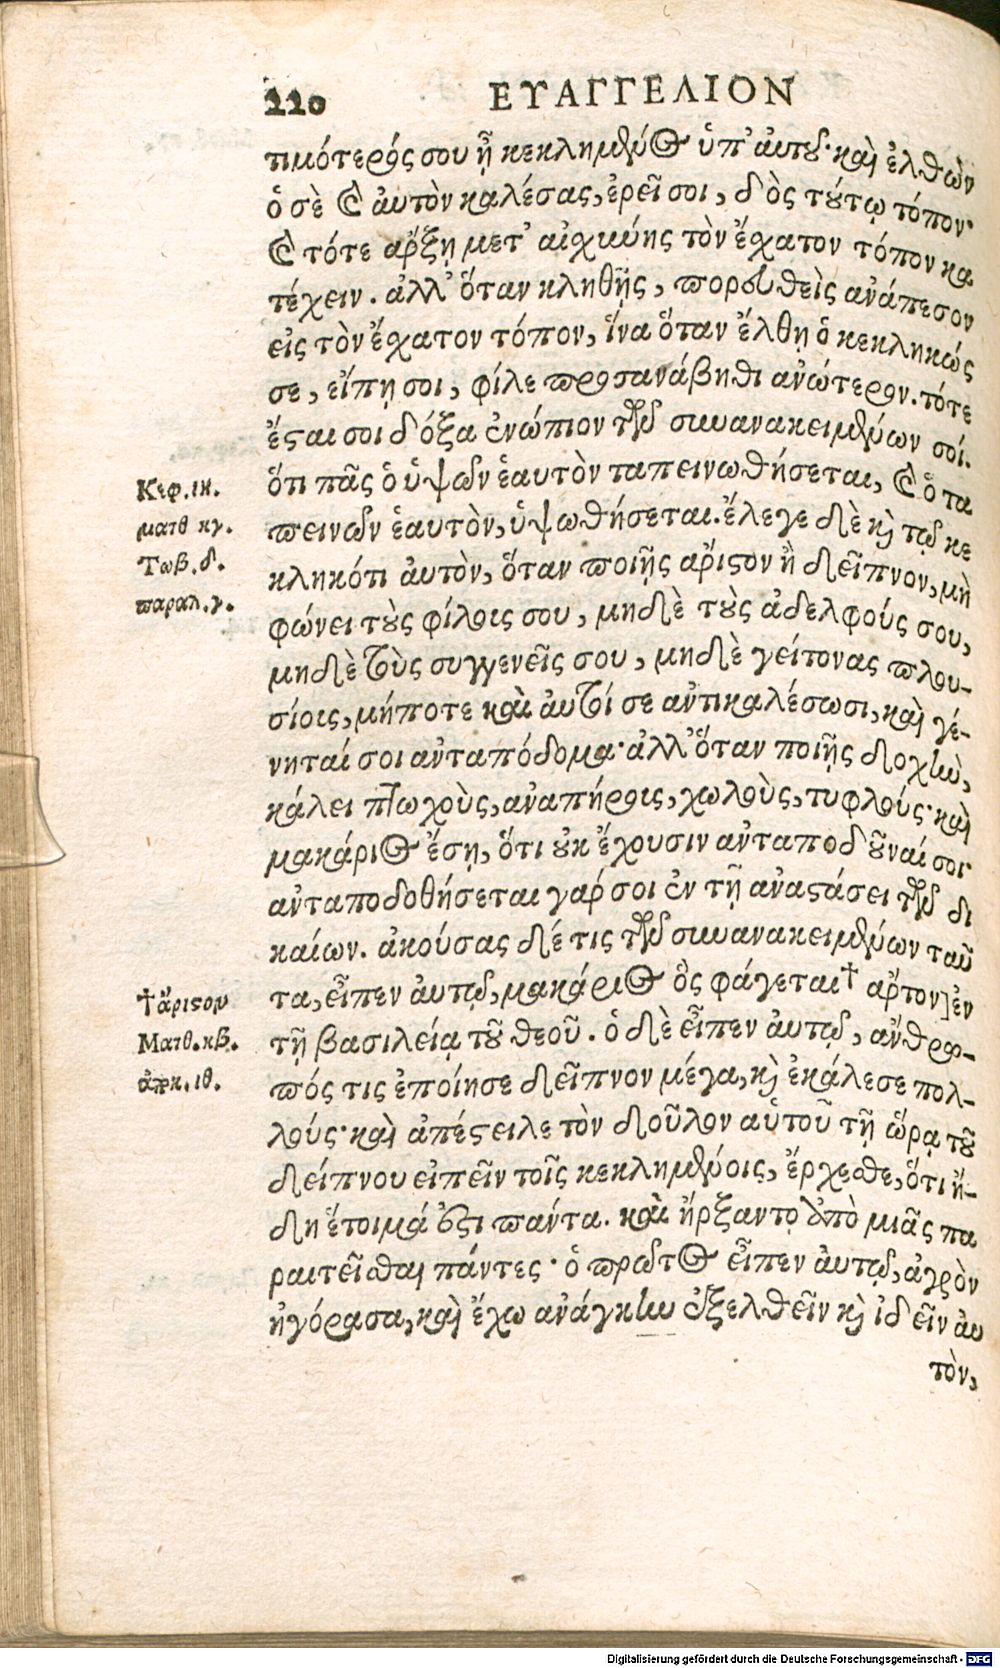 220 ΕΥΑΓΓΕΛΙΟΝ
τιμότερός σου ᾖ κεκλημένος ὑπ' αὐτοῦ· καὶ ἐλθὼν
ὁ σὲ καὶ αὐτὸν καλέσας, ἐρεῖ σοι, δὸς τούτῳ τόπον·
καὶ τότε ἄρξῃ μετ' αἰσχύνης τὸν ἔσχατον τόπον κα
τέχειν. ἀλλ' ὅταν κληθῇς, πορευθεὶς ἀνάπεσον
εἰς τὸν ἔσχατον τόπον, ἵνα ὅταν ἔλθῃ ὁ κεκληκώς
σε, εἴπῃ σοι, φίλε προσανάβηθι ἀνώτερον. τότε
ἔσται σοι δόξα ἐνώπιον τῶν συνανακειμένων σοί.
ὅτι πᾶς ὁ ὑψῶν ἑαυτὸν ταπεινωθήσεται, καὶ ὁ τα
πεινῶν ἑαυτὸν, ὑψωθήσεται. ἔλεγε δὲ καὶ τῷ κε
κληκότι αὐτὸν, ὅταν ποιῇς ἄριστον ἢ δεῖπνον, μὴ
φώνει τοὺς φίλοις σου, μηδὲ τοὺς ἀδελφούς σου,
μηδὲ τοὺς συγγενεῖς σου, μηδὲ γείτονας πλου-
σίοις, μήποτε καὶ αὐτοί σε ἀντικαλέσωσι, καὶ γέ-
νηταί σοι ἀνταπόδομα· ἀλλ' ὅταν ποιῇς δοχὴν,
κάλει πτωχοὺς, ἀναπήροις, χωλοὺς, τυφλούς· καὶ
μακάριος ἔσῃ, ὅτι οὐκ ἔχουσιν ἀνταποδοῦναί σοι
ἀνταποδοθήσεται γάρ σοι ἐν τῇ ἀναστάσει τῶν δι
καίων. ἀκούσας δέ τις τῶν συνανακειμένων ταῦ
τα, εἶπεν αὐτῷ, μακάριος ὃς φάγεται † ἄρτον] ἐν
τῇ βασιλείᾳ τοῦ θεοῦ. ὁ δὲ εἶπεν αὐτῷ, ἄνθρω-
πός τις ἐποίησε δεῖπνον μέγα, καὶ ἐκάλεσε πολ-
λούς· καὶ ἀπέστειλε τὸν δοῦλον αὑτοῦ τῇ ὥρᾳ τοῦ
δείπνου εἰπεῖν τοῖς κεκλημένοις, ἔρχεσθε, ὅτι ἤ-
δη ἕτοιμά ἐστι πάντα. καὶ ἤρξαντο ἀπὸ μιᾶς πα
ραιτεῖσθαι πάντες· ὁ πρῶτος εἶπεν αὐτῷ, ἀγρὸν
ἠγόρασα, καὶ ἔχω ἀνάγκην ἐξελθεῖν καὶ ἰδεῖν αὐ
τὸν,
Κεφ. ιη.
ματθ κγ.
Τωβ. δ.
παραλ. γ.
† ἄριστον
Ματθ. κβ.
ἀποκ. ιθ.
Digitalisierung gefördert durch die Deutsche Forschungsgemeinschaft - DFG